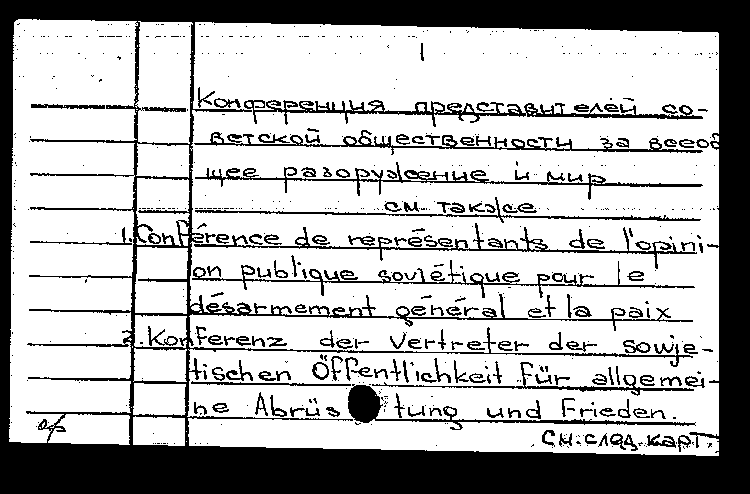 Конференция представителей со-
ветской общественности за всеоб
щее разоружение и мир
см. также
1. Conférence de représentants de l'opini-
on publique soviétique pour le
désarmement général et la paix
2. Konferenz der Vertreter der sowje-
tischen Öffentlichkeit für allgemei-
ne Abrüs tung und Frieden.
см. след. карт.